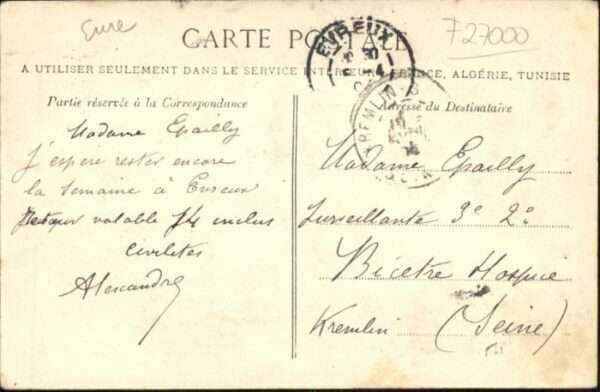 Eure
F27000
CARTE POSTALE
A UTILISER SEULEMENT DANS LE SERVICE INTÉRIEUR, FRANCE, ALGÉRIE, TUNISIE
EVREUX
KREMLIN-B
Partie réservée à la Correspondance
Madame Epailly
j'espere rester encore
la semaine à Evreux
Retour valable 14 inclus
Civilités
Alexandre
Adresse du Destinataire
Madame Epailly
Surveillante 3e 2e
Bicetre Hospice
Kremlin (Seine)